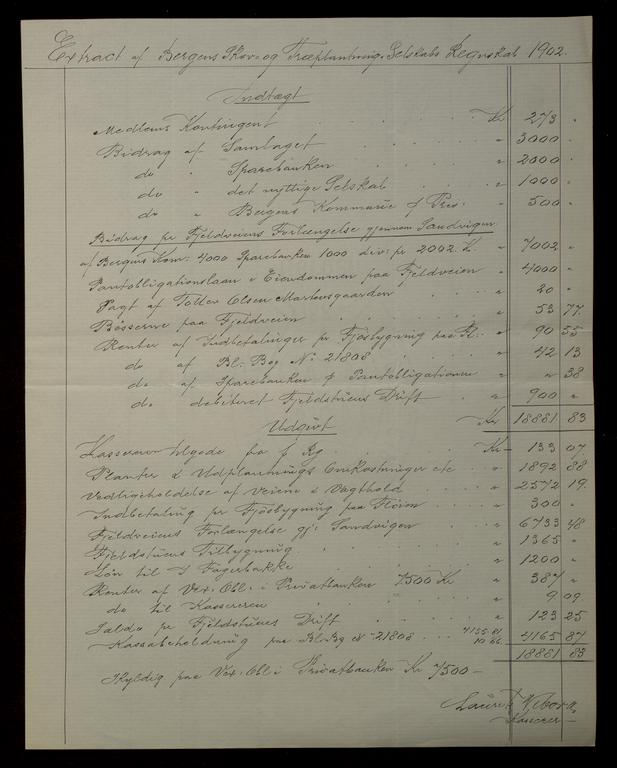 Extract af Bergens Skov- og Træplantnings Selskabs Regnskab 1902.
Indtægt
Medlems Kontingent Kr 273 "
Bidrag af Samlaget " 3000 "
do " Sparebanken " 2000 "
do " det nyttige Selskab " 1000 "
do " Bergens Kommune " 500 "
Bidrag pr Fjeldveiens Forlængelse gjennem Sandvigen
af Bergens Kom: 4000 Sparebanken 1000 div: pr 2002. K. " 7002 "
Pantobligationslaan i Eiendommen paa Fjeldveien " 4000 "
Pagt af Tollev Olsen Martensgaarden " 20 "
Bøsserne paa Fjeldveien " 53 77.
Renter af Indbetalinger pr Fjøsbygning paa Fl: " 90 55
do af Bl: Bog No 21808 " 42 13
do af Sparebanken Pantobligationen " " 38
do debiteret Fjeldstuens Drift " 900 "
Kr 18881 83
Udgivt
Kasserer tilgode fra Rg Kr 133 07
Planter & Udplantnings Omkostninger etc " 1892 88
Vedligeholdelse af Veiene & Vagthold " 2572 19.
Indbetaling pr Fjøsbygning paa Fløien " 300 "
Fjeldveiens Forlængelse gj: Sandvigen " 6733 48
Fjeldstuens Tilbygning " 1365 "
Løn til Fagerbakke " 1200 "
Renter af Vex: Obl: i Privatbanken 7500 Kr " 387 "
do til Kassereren 9.09
Saldo pr Fjeldstuens Drift " 123 25
Kassabeholdning paa Bl: Bg No 21808 4155.21 10.66 " 4165 87
18881 83
Skyldig paa Vex: Obl i Privatbanken Kr 7500 —
Kasserer